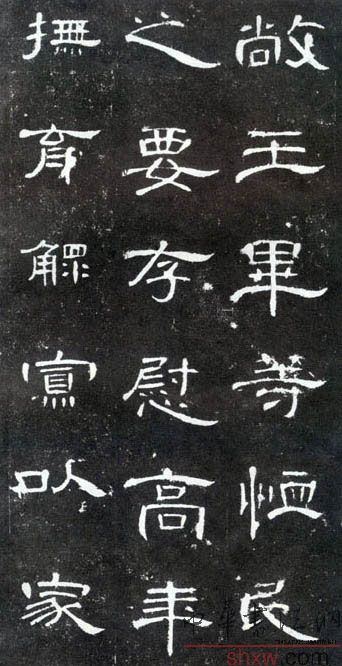 敞王畢等恤民
之要存慰高年
撫育鰥寡以家
shxw.com